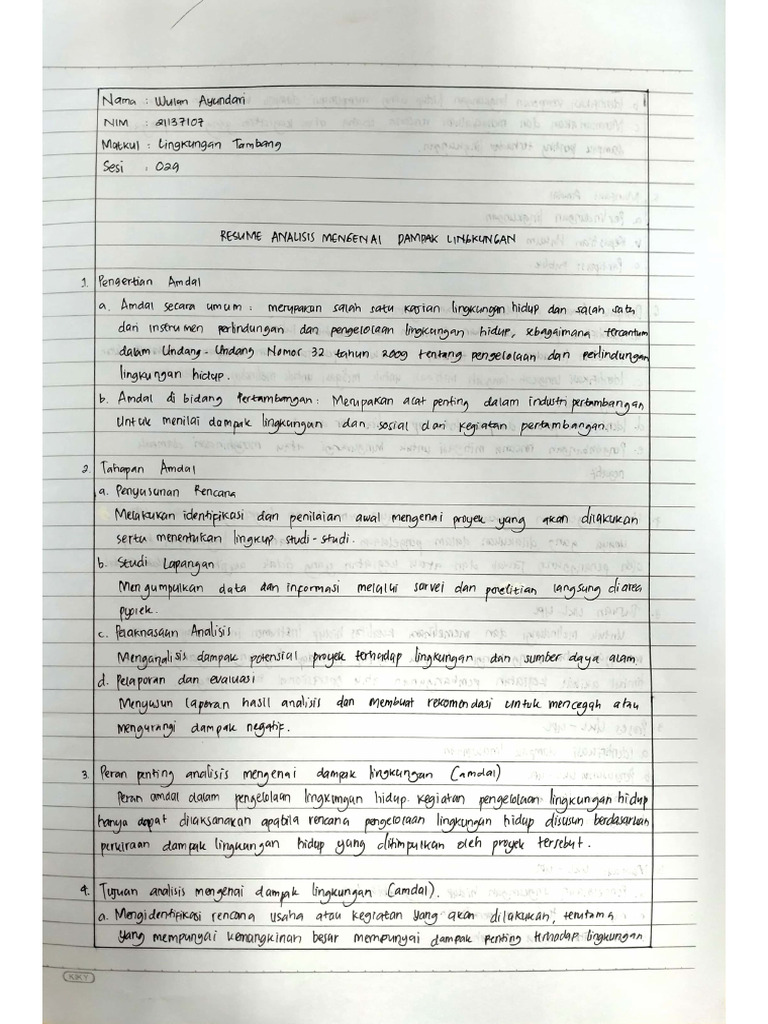 Nama : Wulan Ayundari
NIM : 21137107
Matkul : Lingkungan Tambang
Sesi : 029
RESUME ANALISIS MENGENAI DAMPAK LINGKUNGAN
1. Pengertian Amdal
a. Amdal secara umum : merupakan salah satu kasian lingkungan hidup dan salah satu
dari instrumen perlindungan dan pengelolaan lingkungan hidup, sebagaimana tercantum
dalam Undang-Undang Nomor 32 tahun 2009 tentang pengelolaan dan perlindungan
lingkungan hidup.
b. Amdal di bidang Pertambangan : Merupakan acat penting dalam industri pertambangan
Untuk menilai dampak lingkungan dan sosial dari kegiatan pertambangan.
2. Tahapan Amdal
a. Penyusunan Rencana
Melakukan identifikasi dan penilaian awal mengenai proyek yang akan dilakukan
serta menentukan lingkup studi-studi.
b. Studi Lapangan
Mengumpulkan data dan informasi melalui survei dan penelitian langsung diarea
pyorek.
c. Pelaknasaan Analisis
Menganalisis dampak potensial proyek terhadap lingkungan dan sumber daya alam
d. Pelaporan dan evaluasi
Menyusun laporan hasil analisis dan membuat rekomendasi untuk mencegah atau
mengurangi dampak negatif.
3. Peran penting analisis mengenai dampak lingkungan (amdal)
Peran amdal dalam pengelolaan lingkungan hidup. kegiatan pengelolaan lingkungan hidup
hanya dapat dilaksanakan apabila rencana pengelolaan lingkungan hidup disusun berdasarkan
perkiraan dampak lingkungan hidup yang ditimpulkan oleh proyek tersebut.
4. Tujuan analisis mengenai dampak lingkungan (amdal).
a. Mengidentifikasi rencana usaha atau kegiatan yang akan dilakukan, terutama
yang mempunyai kemangkinan besar mempunyai dampak penting terhadap lingkungan
KIKY